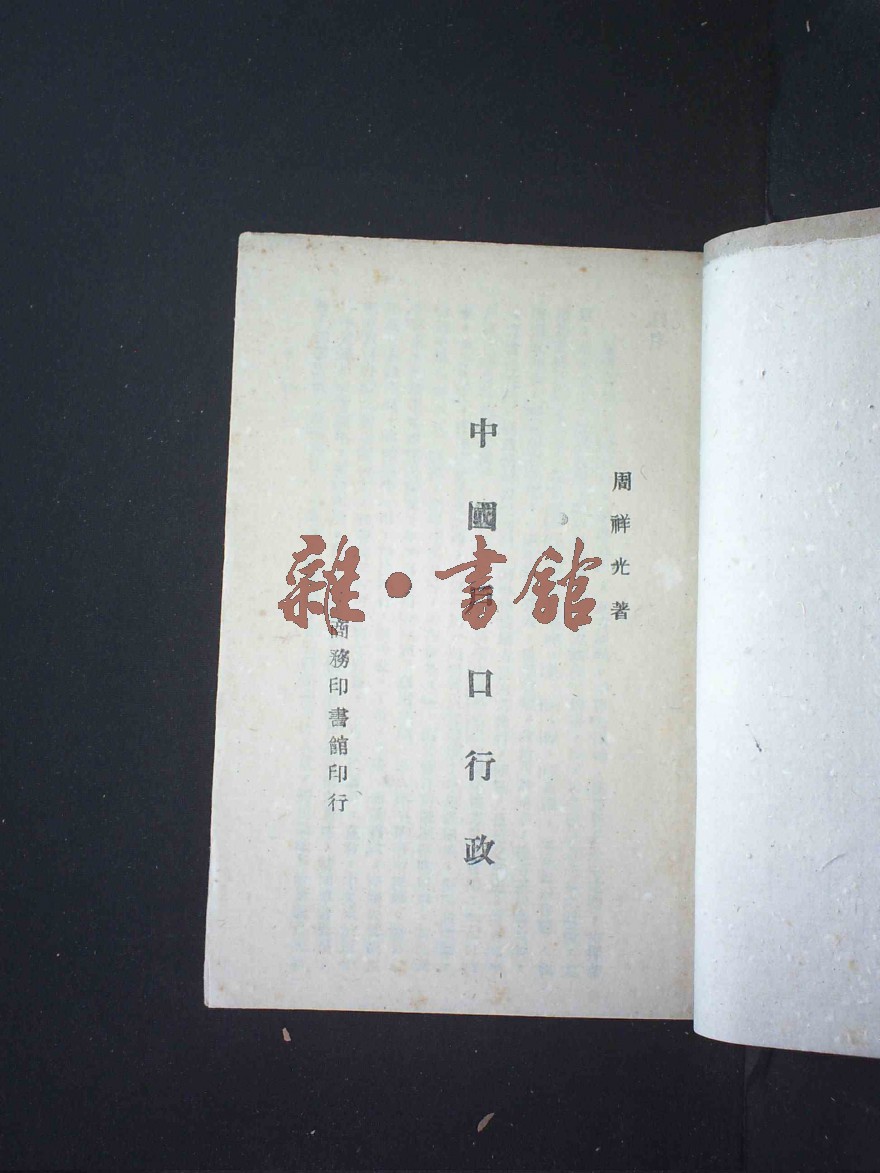 周祥光著
中國戶口行政
商務印書館印行
雜·書館